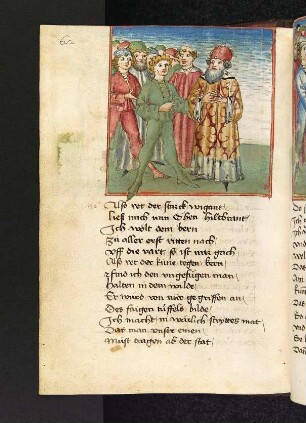 Also ret der starck wigant
ließ mich min oͤhen hiltbrant
Ich wolt dem bern
Zu aller erst ritten nach
Vff die vart so ist mir gach
Also ret der kune regen bern
Find ich den ungefügen man
Halten in dem wilde
Er wurd von mir gegriffen an
Des fuirgen tüffels bilde
Ich mach im werlich strytes mat
Das man unser einen
Muͦst tragen ab der stat